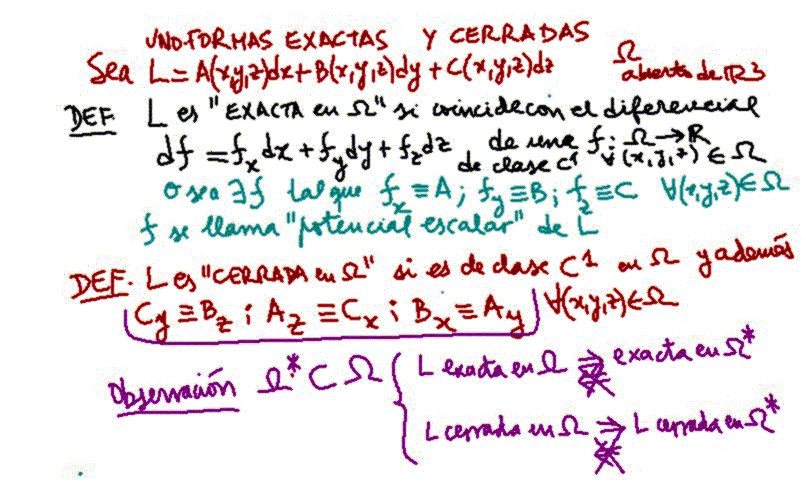 UNO-FORMAS EXACTAS Y CERRADAS
Sea L = A(x,y,z)dx + B(x,y,z)dy + C(x,y,z)dz Ω abierto de R3
DEF. L es "EXACTA en Ω" si coincide con el diferencial
df = f_x dx + f_y dy + f_z dz de una f: Ω → R
de clase C¹ ∀(x,y,z) ∈ Ω
o sea ∃f tal que f_x ≡ A; f_y ≡ B; f_z ≡ C ∀(x,y,z) ∈ Ω
f se llama "potencial escalar" de L
DEF. L es "CERRADA en Ω" si es de clase C¹ en Ω y además
C_y ≡ B_z ; A_z ≡ C_x ; B_x ≡ A_y ∀(x,y,z) ∈ Ω
Observación Ω* ⊂ Ω { L exacta en Ω ⇒ exacta en Ω*
⇍
L cerrada en Ω ⇒ L cerrada en Ω*
⇍